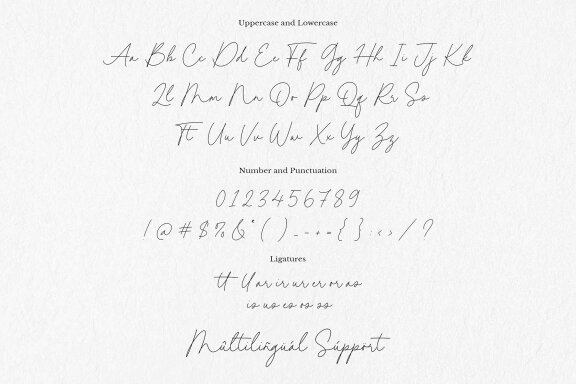 Uppercase and Lowercase
Aa Bb Cc Dd Ee Ff Gg Hh Ii Jj Kk
Ll Mm Nn Oo Pp Qq Rr Ss
Tt Uu Vv Ww Xx Yy Zz
Number and Punctuation
0123456789
! @ # $ % & * ( ) _ - + = { } : < > / ?
Ligatures
tt ll ar ir ur er or as
is us es os ss
Múltilíñgúál Súppórt